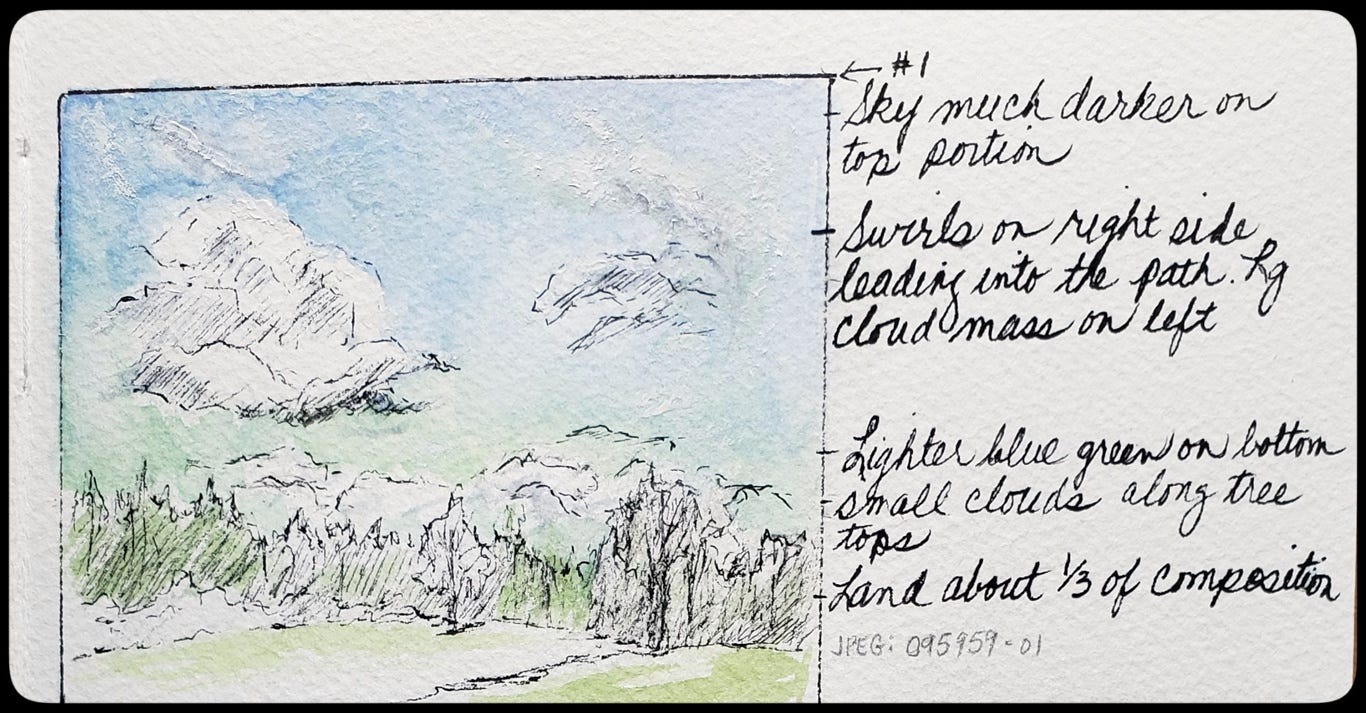 ← #1
- Sky much darker on
top portion
- Swirls on right side
leading into the path. Lg
Cloud mass on left
- Lighter blue green on bottom
- small clouds along tree
tops
- Land about 1/3 of composition
JPEG: 095959-01